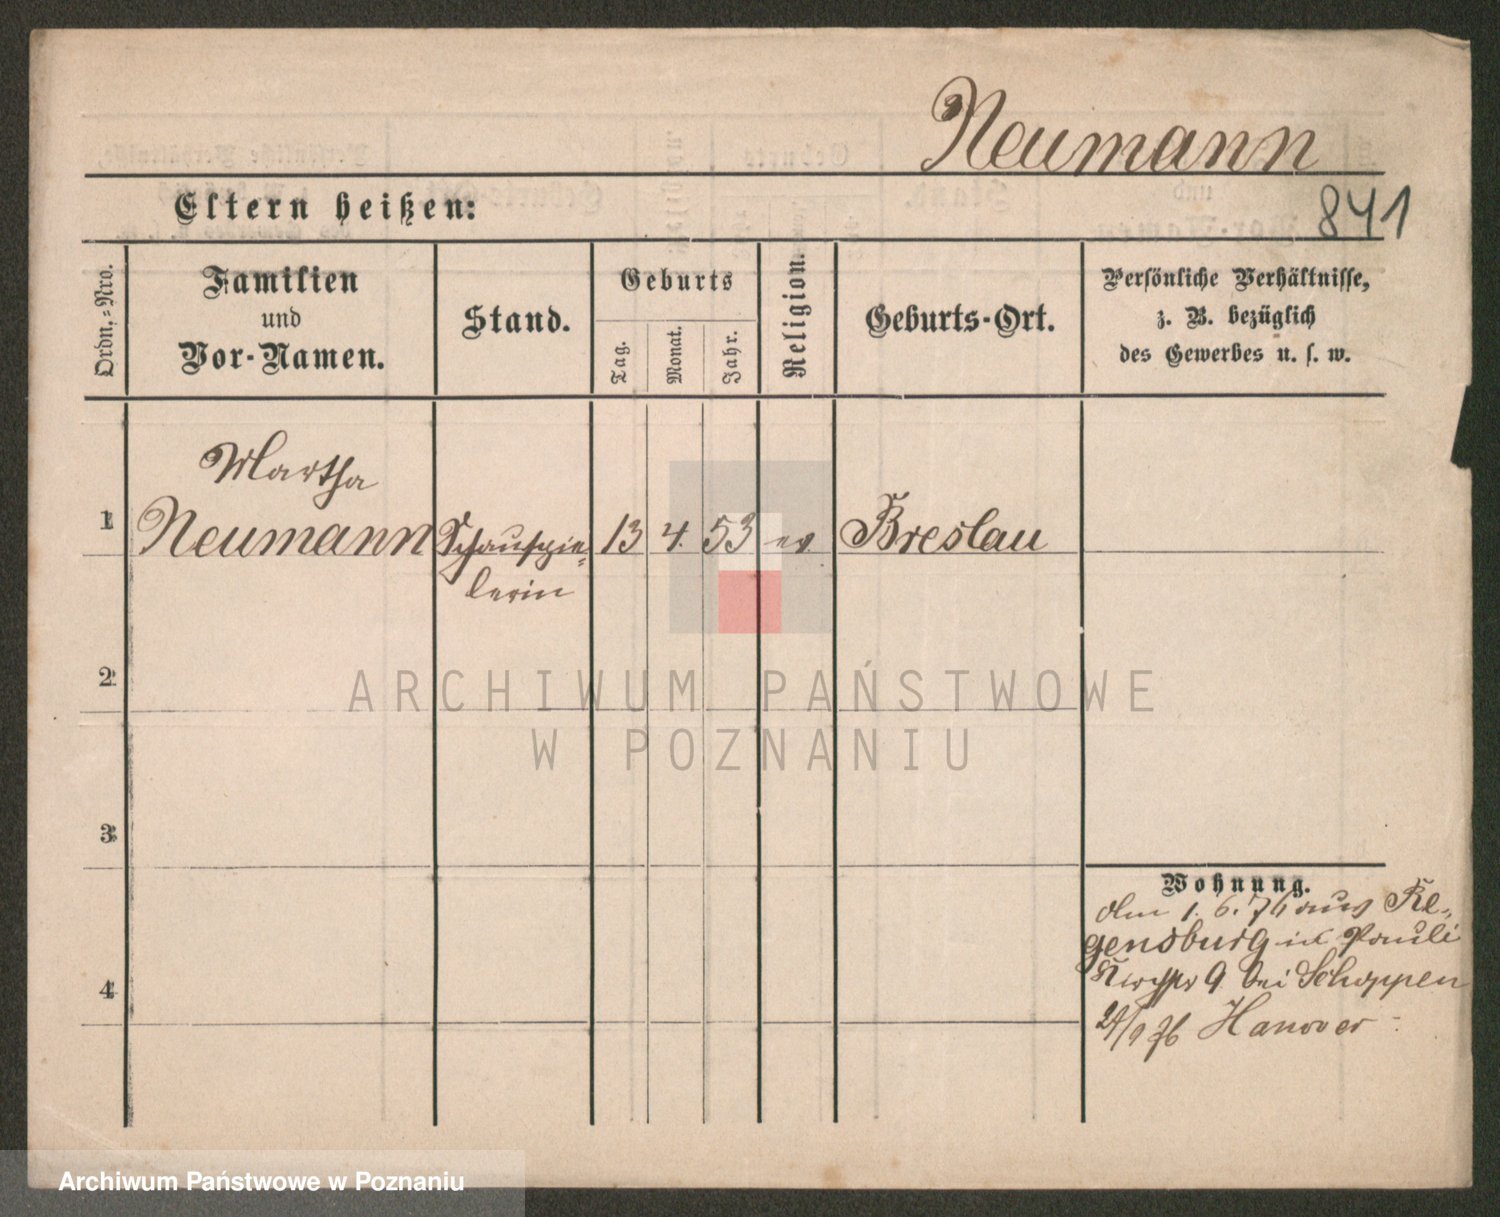 Neumann
841
Eltern heißen:
Ordn.=Nro.
Familien
und
Vor-Namen.
Stand.
Geburts
Tag.
Monat.
Jahr.
Religion.
Geburts-Ort.
Persönliche Verhältnisse,
z. B. bezüglich
des Gewerbes u. s. w.
Martha
1 Neumann Schauspie= 13 4. 53 ev. Breslau
lerin
2
3
Wohnung.
1. 6. 76 aus Re=
gensburg in Pauli
Kirchstr 9 bei Schoppen
4
24/9 76 Hanover
ARCHIWUM PAŃSTWOWE
W POZNANIU
Archiwum Państwowe w Poznaniu